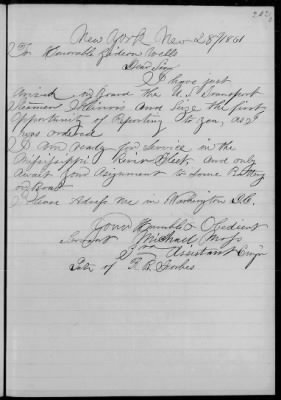 New York Nov 28/1861
To Honorable Gideon Wells
Dear Sir
I have just
Arrived on Board the U.S. Transport
Steamer Illinois And Size the first
Opportunity of Reporting to you, as I
was ordered
I am ready for Service in the
Mississippi River Fleet and only
Await your Assignment to Some
on Board
Please Adress Me in Washington D.C.
Your Humble Obedient
Servant Michael Moss
Assistant Engr
Late of R. B. Forbes